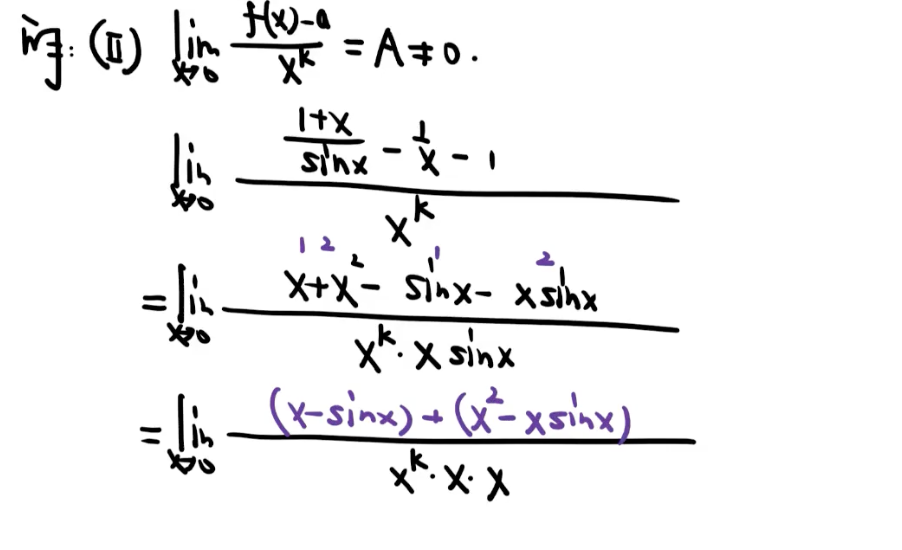 解: (II) lim_{x→0} (f(x)-a)/(x^k) = A ≠ 0.
lim_{x→0} ((1+x)/(sinx) - 1/x - 1)/(x^k)
1 2 1 2
= lim_{x→0} (x+x^2 - sinx - xsinx)/(x^k · x sinx)
= lim_{x→0} ((x-sinx)+(x^2-xsinx))/(x^k · x · x)